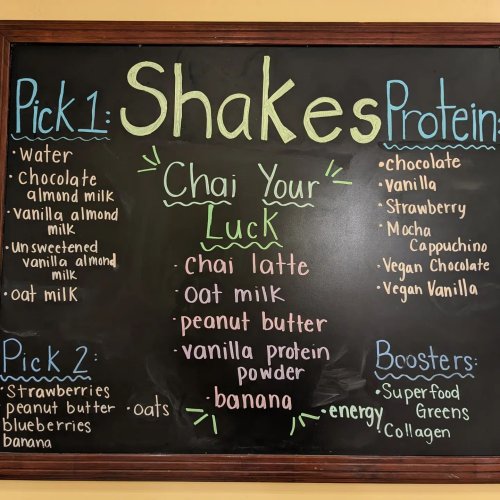 Shakes
Pick 1:
· Water
· Chocolate
almond milk
· vanilla almond
milk
· unsweetened
vanilla almond
milk
· oat milk
Pick 2:
· Strawberries
peanut butter
blueberries
banana
· oats
Chai Your
Luck
· chai latte
· oat milk
· peanut butter
· vanilla protein
powder
· banana
Protein:
· chocolate
· vanilla
· Strawberry
· Mocha
Cappuchino
· Vegan Chocolate
· Vegan Vanilla
Boosters:
· Superfood
Greens
· Collagen
· energy